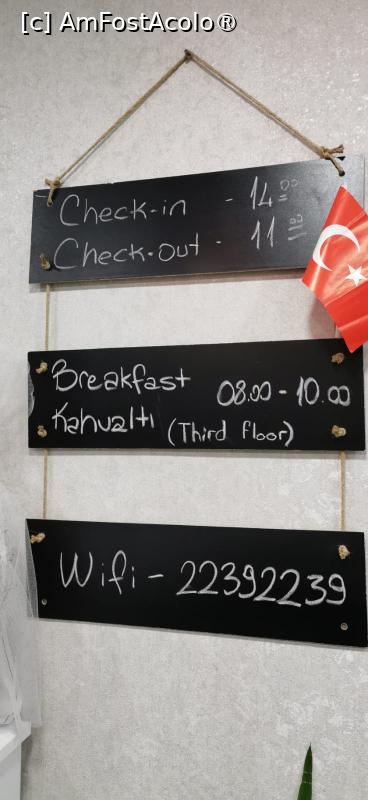 [c] AmFostAcolo®
Check-in - 14 00
Check-out - 11 00
Breakfast 08.00 - 10.00
Kahvaltı (Third floor)
Wifi - 22392239